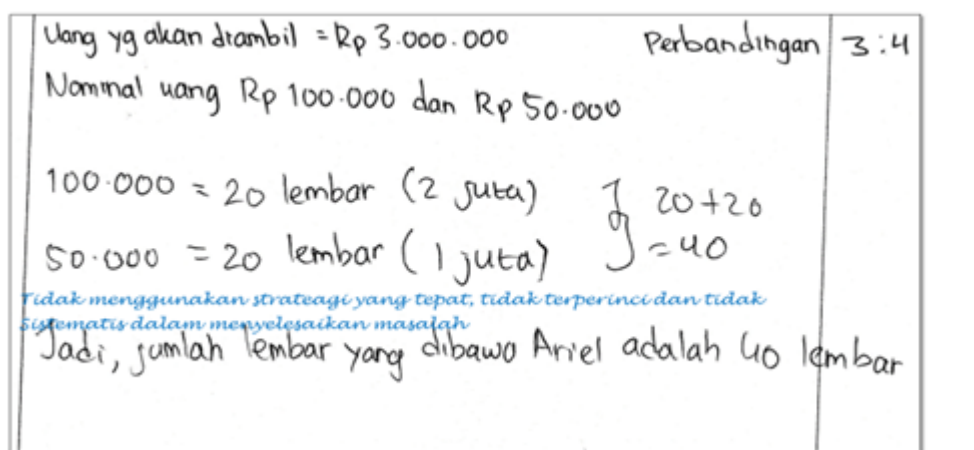 Uang yg akan diambil = Rp 3.000.000 Perbandingan 3:4
Nominal uang Rp 100.000 dan Rp 50.000
100.000 = 20 lembar (2 juta) } 20+20
50.000 = 20 lembar (1 juta) = 40
Tidak menggunakan strateagi yang tepat, tidak terperinci dan tidak
Sistematis dalam menyelesaikan masalah
Jadi, jumlah lembar yang dibawa Ariel adalah 40 lembar